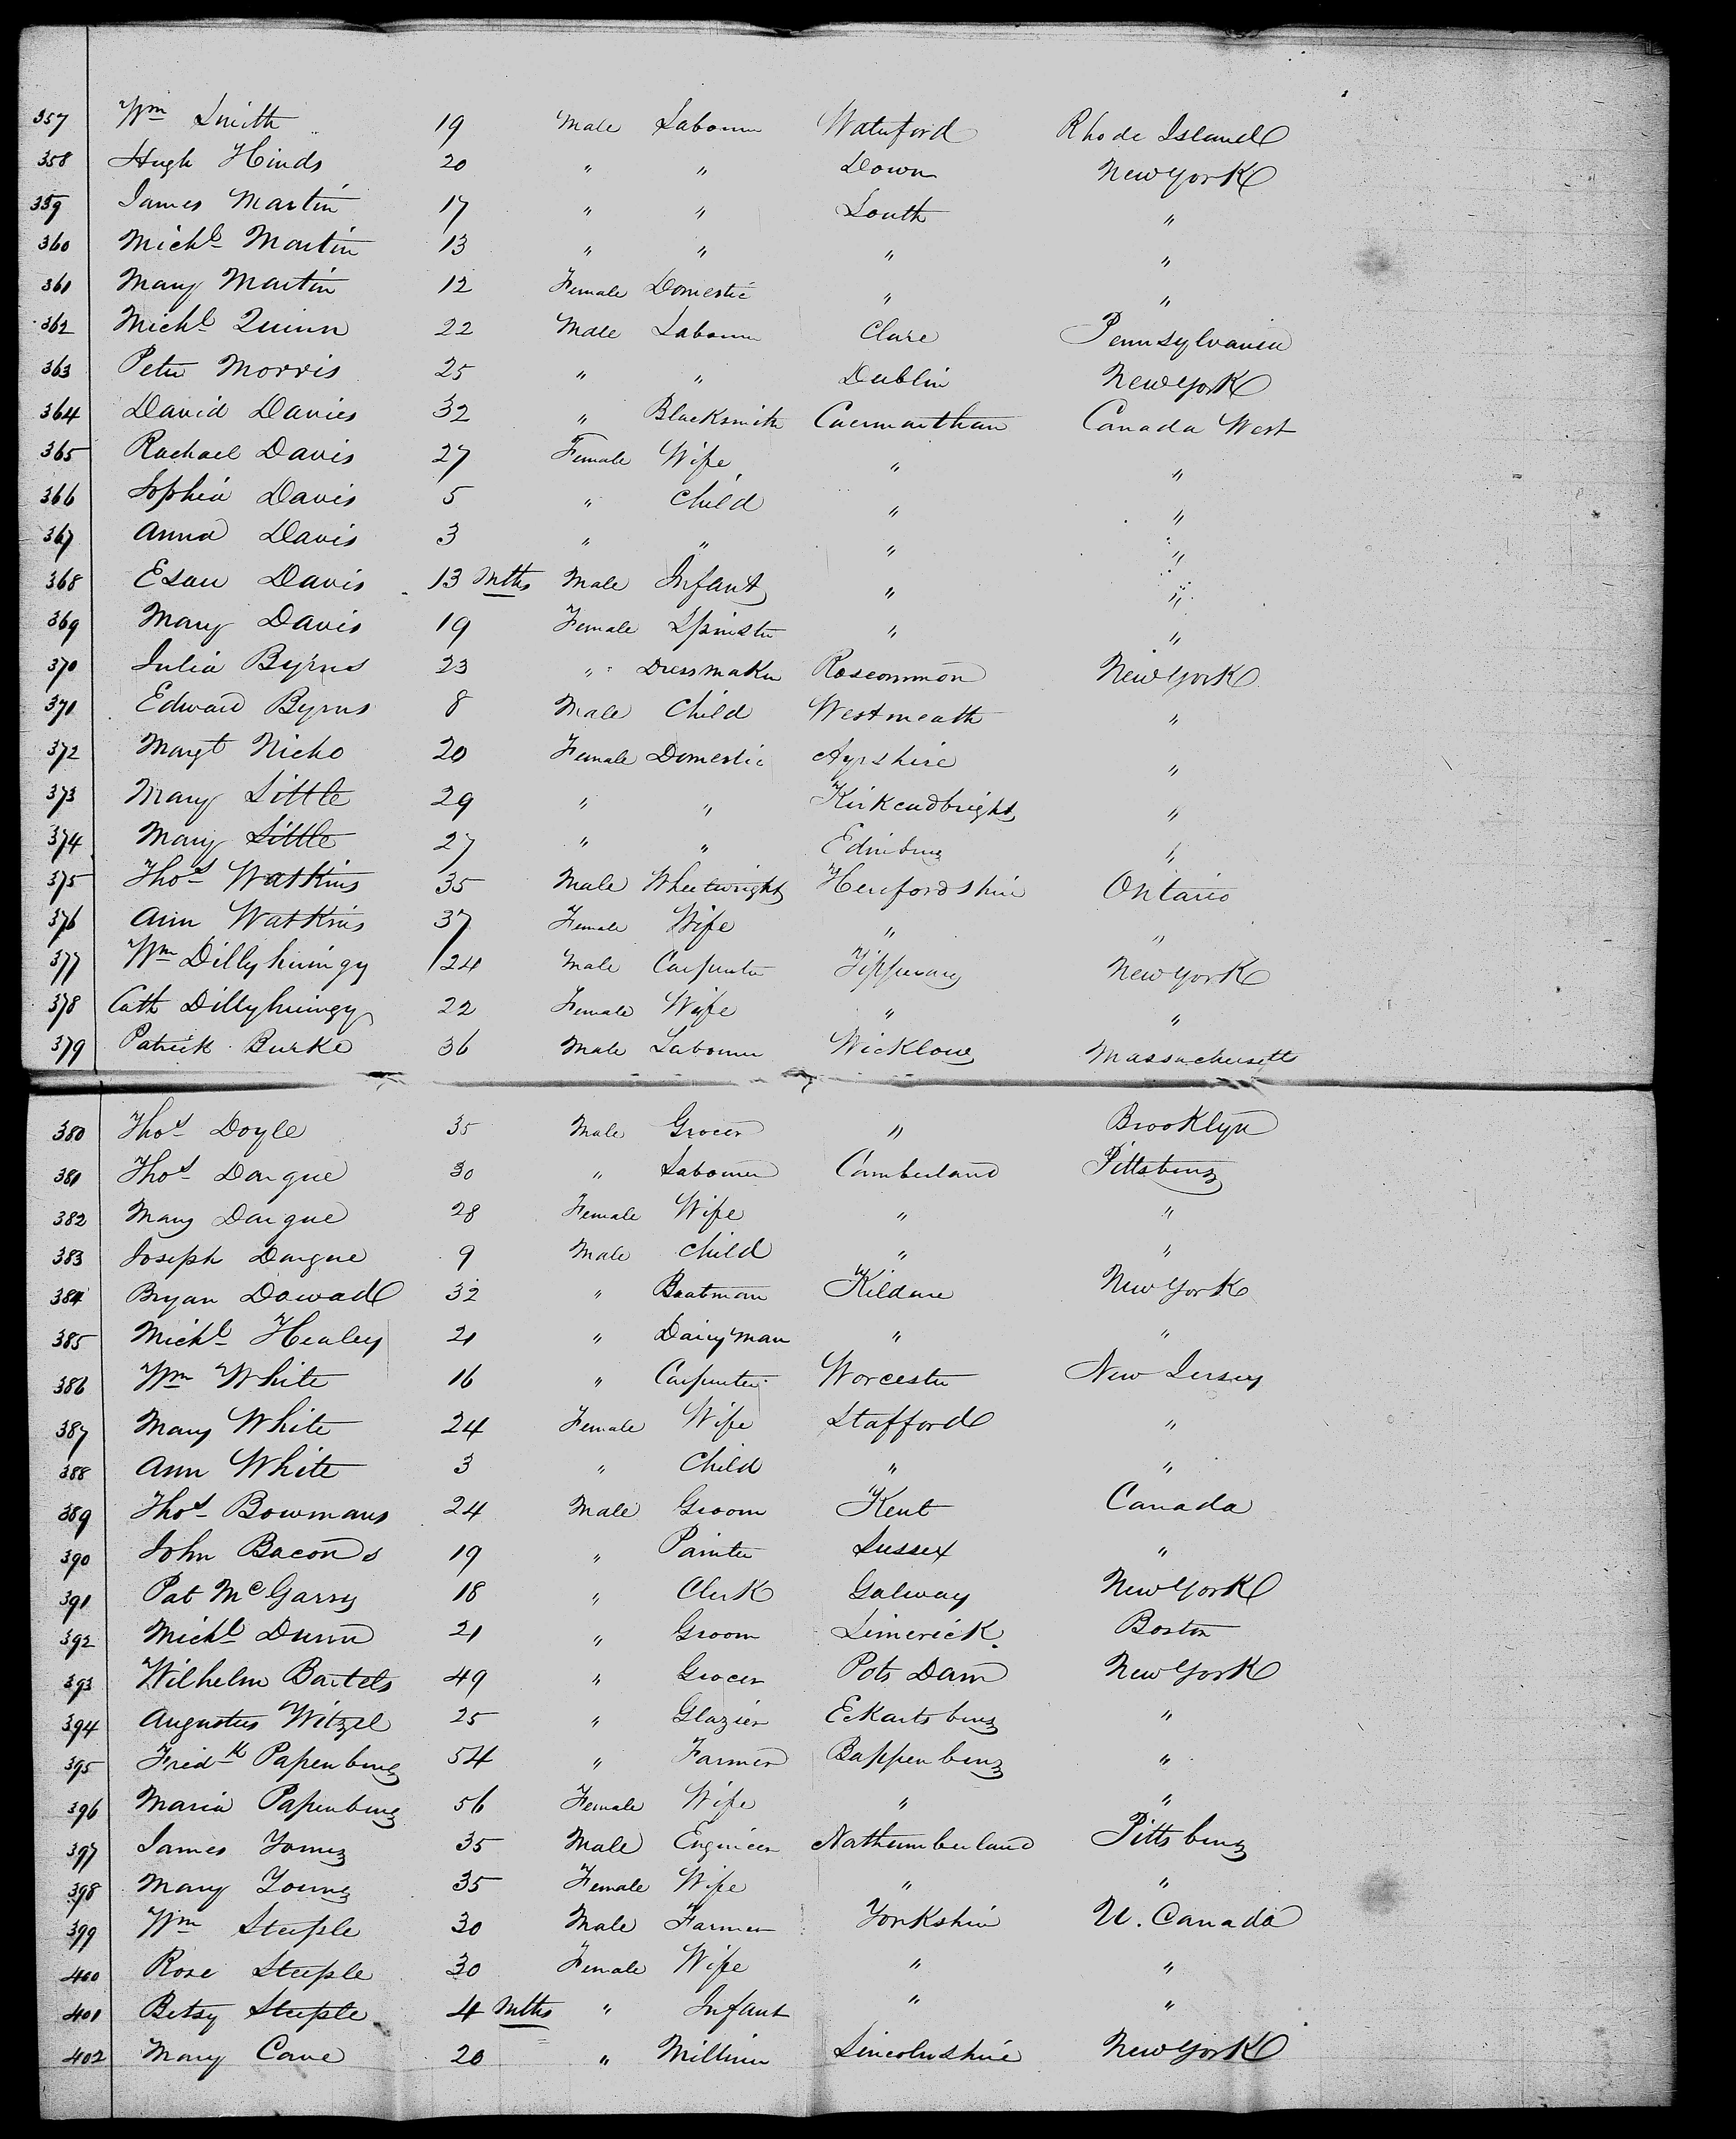 357 Wm Smith 19 Male Labourer Waterford Rhode Island
358 Hugh Hinds 20 " " Down New York
359 James Martin 17 " " Louth "
360 Michl Martin 13 " " " "
361 Mary Martin 12 Female Domestic " "
362 Michl Quinn 22 Male Labourer Clare Pennsylvania
363 Peter Morris 25 " " Dublin New York
364 David Davies 32 " Blacksmith Caermarthan Canada West
365 Rachael Davis 27 Female Wife " "
366 Sophia Davis 5 " Child " "
367 Anna Davis 3 " " " "
368 Esau Davis 13 Mths Male Infant " "
369 Mary Davis 19 Female Spinster " "
370 Julia Byrns 23 " Dressmaker Roscommon New York
371 Edward Byrns 8 Male Child Westmeath "
372 Margt Nicho 20 Female Domestic Ayrshire "
373 Mary Little 29 " " Kirkcudbright "
374 Mary Little 27 " " Edinburg "
375 Thos Watkins 35 Male Wheelwright Herefordshire Ontario
376 Ann Watkins 37 Female Wife " "
377 Wm Dillyhuingy 24 Male Carpenter Tipperary New York
378 Cath Dillyhuingy 22 Female Wife " "
379 Patrick Burke 36 Male Labourer Wicklow Massachusetts
380 Thos Doyle 35 Male Grocer " Brooklyn
381 Thos Dargue 30 " Labourer Cumberland Pittsburg
382 Mary Dargue 28 Female Wife " "
383 Joseph Dargue 9 Male Child " "
384 Bryan Dowad 32 " Boatman Kildare New York
385 Michl Healey 21 " Dairyman " "
386 Wm White 16 " Carpenter Worcester New Jersey
387 Mary White 24 Female Wife Stafford "
388 Ann White 3 " Child " "
389 Thos Bowmans 24 Male Groom Kent Canada
390 John Bacons 19 " Painter Sussex "
391 Pat McGarry 18 " Clerk Galway New York
392 Michl Dunn 21 " Groom Limerick Boston
393 Wilhelm Bartels 49 " Grocer Pots Dam New York
394 Augustus Witzel 25 " Glazier Eckartsburg "
395 Fredk Papenburg 54 " Farmer Bappenburg "
396 Maria Papenburg 56 Female Wife " "
397 James Young 35 Male Engineer Northumberland Pittsburg
398 Mary Young 35 Female Wife " "
399 Wm Steeple 30 Male Farmer Yorkshire U. Canada
400 Rose Steeple 30 Female Wife " "
401 Betsy Steeple 4 Mths " Infant " "
402 Mary Cave 20 " Milliner Lincolnshire New York